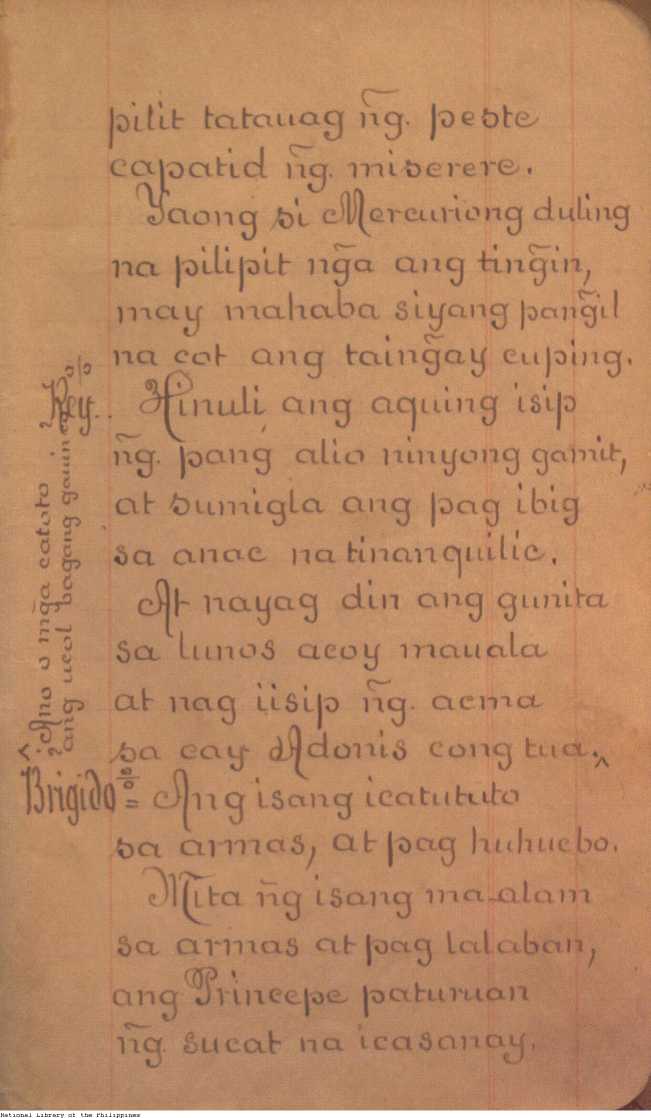 pilit tatauag ñg. peste
capatid ñg. miserere.
Yaong si Mercuriong duling
na pilipit ng̃a ang ting̃in,
may mahaba siyang pang̃il
na cot ang taing̃ay cuping.
Rey.. Hinuli ang aquing isip
ñg. pang alio ninyong gamit,
at sumigla ang pag ibig
sa anac na tinanquilic.
At nayag din ang gunita
sa lunos acoy mauala
at nag iisip ñg. acma
sa cay Adonis cong tua.^
^¿Ano o mg̃a catoto
¿ang ucol bagang gauin co?
Brigido = Ang isang icatututo
sa armas, at pag huhuebo.
Mita ñg isang ma-alam
sa armas at pag lalaban,
ang Princepe paturuan
ñg. sucat na icasanay.
National Library of the Philippines